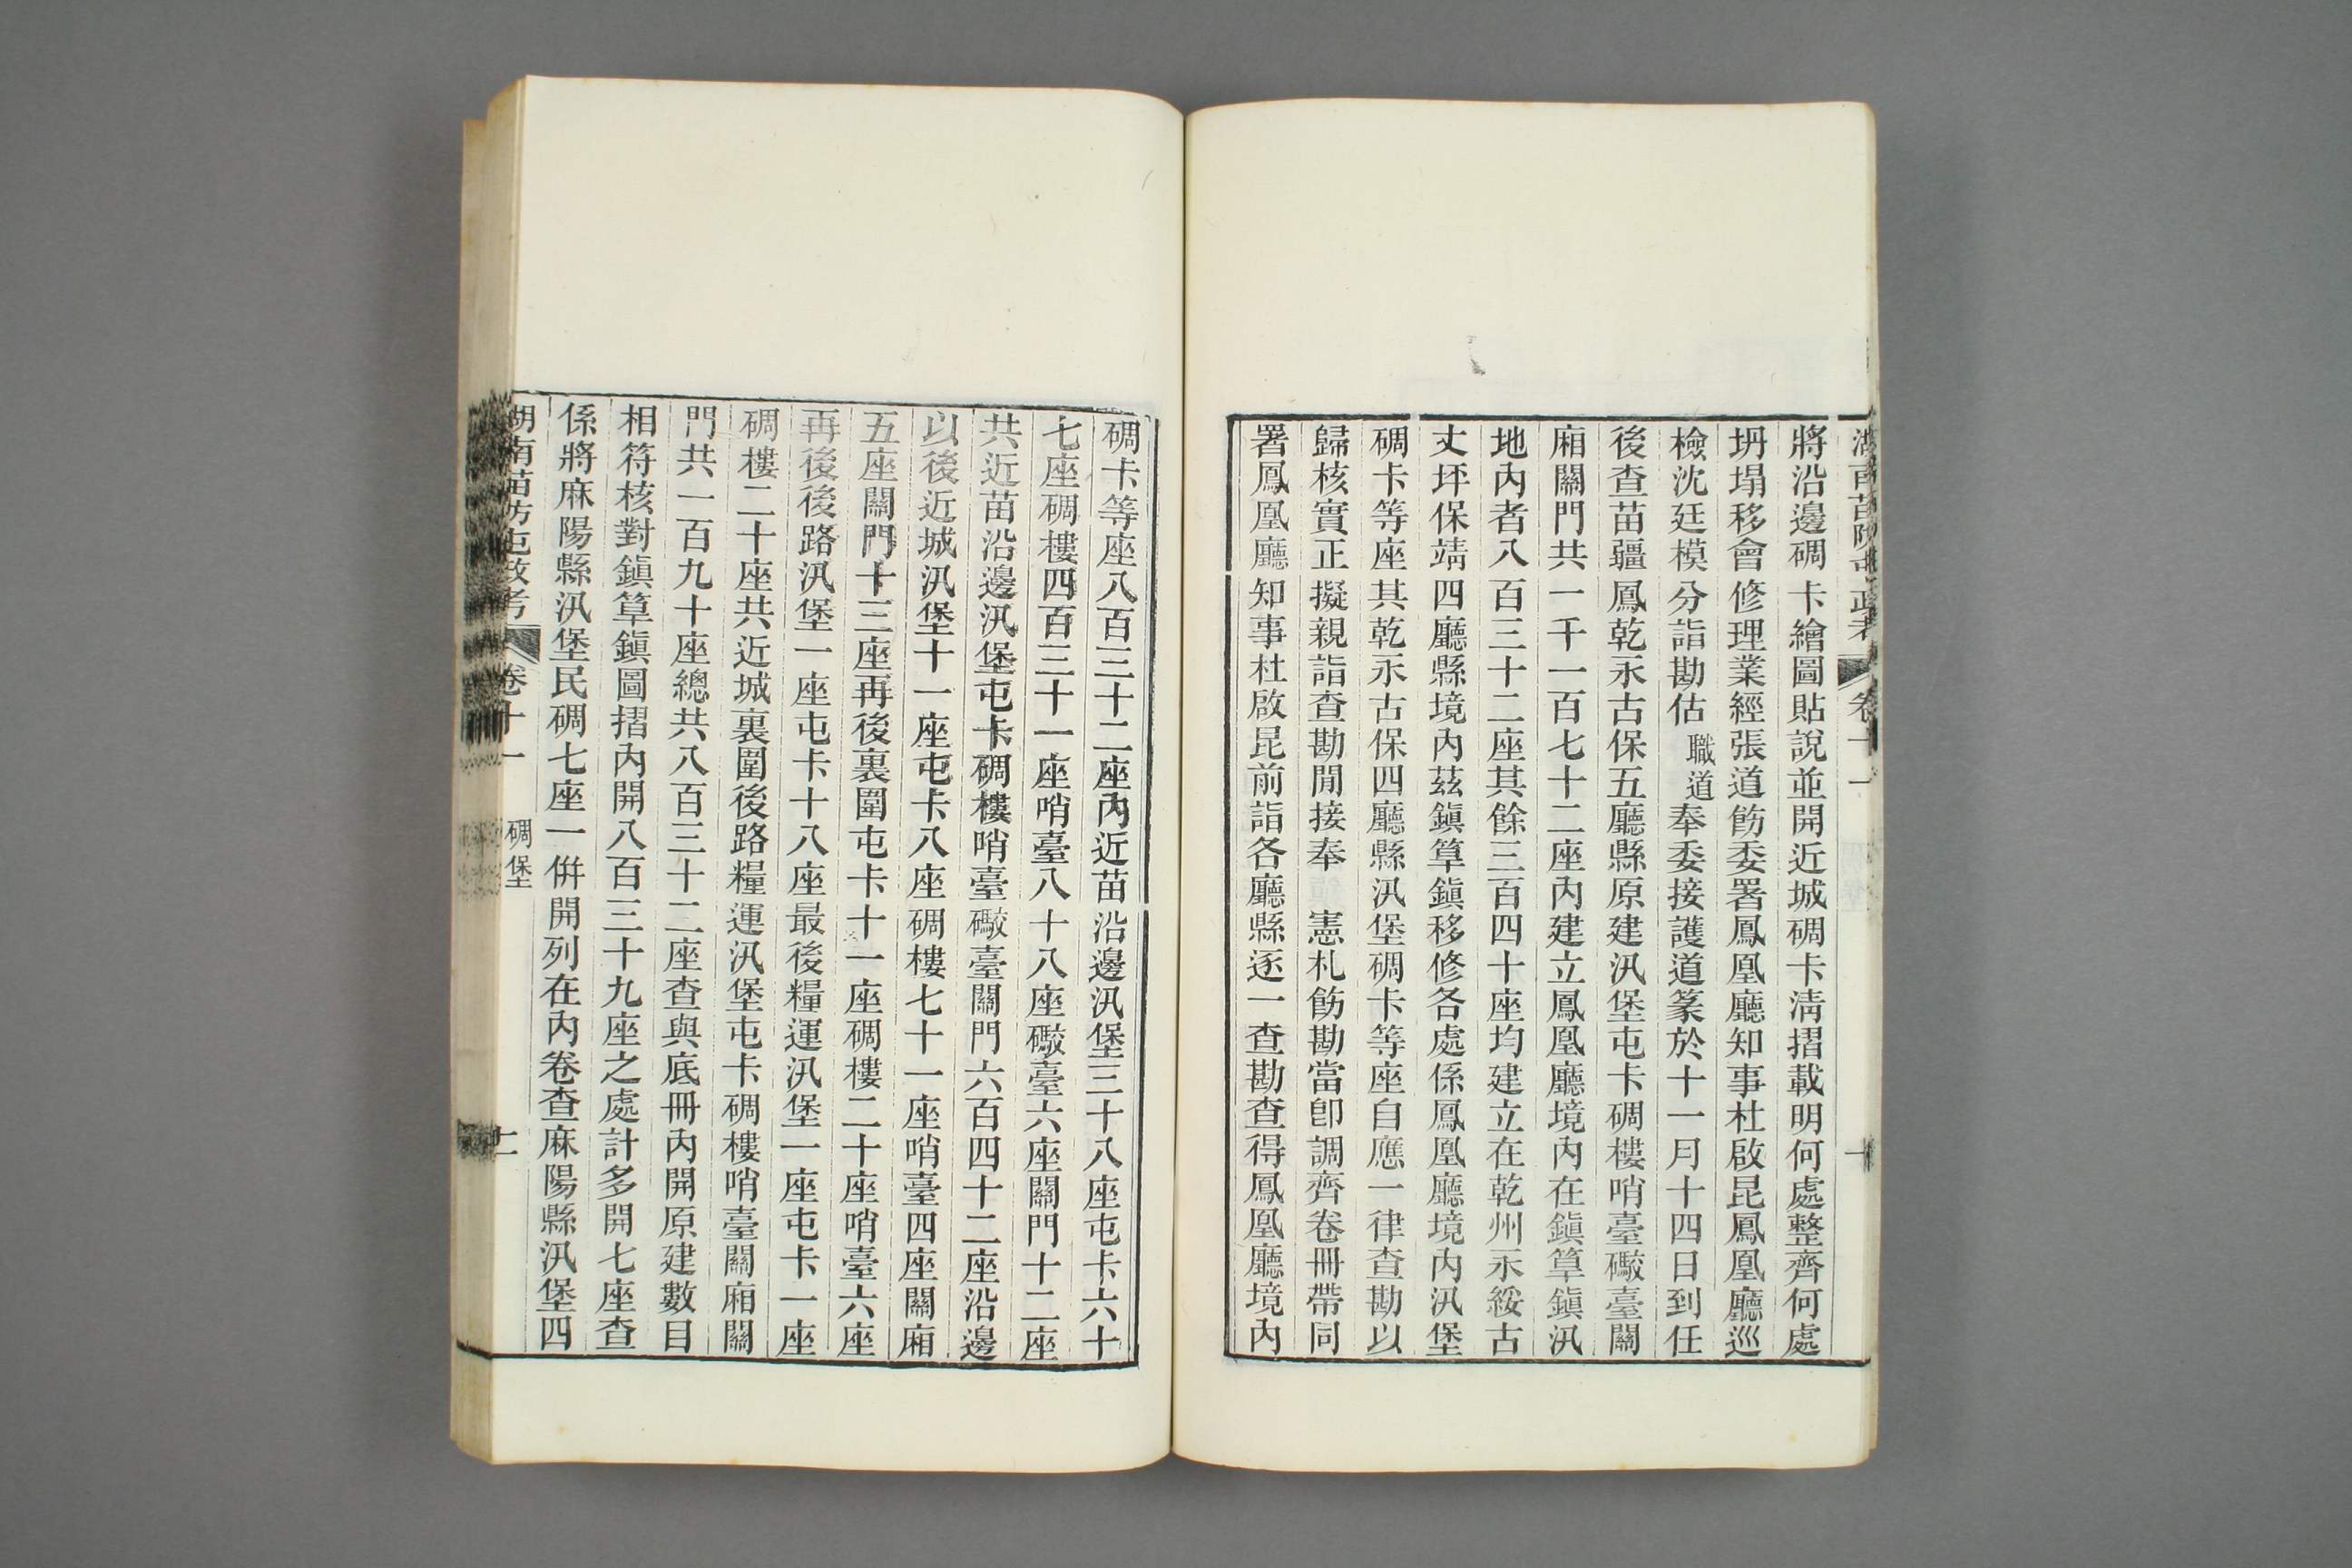 湖南苗防屯政考 卷十一
將沿邊碉卡繪圖貼說並開近城碉卡淸摺載明何處整齊何處
坍塌移會修理業經張道飭委署鳳凰廳知事杜啟昆鳳凰廳巡
檢沈廷模分詣勘估職道奉委接護道篆於十一月十四日到任
後查苗疆鳳乾永古保五廳縣原建汛堡屯卡碉樓哨臺礮臺關
廂關門共一千一百七十二座內建立鳳凰廳境內在鎭筸鎭汛
地內者八百三十二座其餘三百四十座均建立在乾州永綏古
丈坪保靖四廳縣境內茲鎭筸鎭移修各處係鳳凰廳境內汛堡
碉卡等座其乾永古保四廳縣汛堡碉卡等座自應一律查勘以
歸核實正擬親詣查勘閒接奉 憲札飭勘當卽調齊卷冊帶同
署鳳凰廳知事杜啟昆前詣各廳縣逐一查勘查得鳳凰廳境內
碉卡等座八百三十二座內近苗沿邊汛堡三十八座屯卡六十
七座碉樓四百三十一座哨臺八十八座礮臺六座關門十二座
共近苗沿邊汛堡屯卡碉樓哨臺礮臺關門六百四十二座沿邊
以後近城汛堡十一座屯卡八座碉樓七十一座哨臺四座關廂
五座關門十三座再後裏圍屯卡十一座碉樓二十座哨臺六座
再後後路汛堡一座屯卡十八座最後糧運汛堡一座屯卡一座
碉樓二十座共近城裏圍後路糧運汛堡屯卡碉樓哨臺關廂關
門共一百九十座總共八百三十二座查與底冊內開原建數目
相符核對鎭筸鎭圖摺內開八百三十九座之處計多開七座查
係將麻陽縣汛堡民碉七座一併開列在內卷查麻陽縣汛堡四
湖南苗防屯政考 卷十一 碉堡 十一